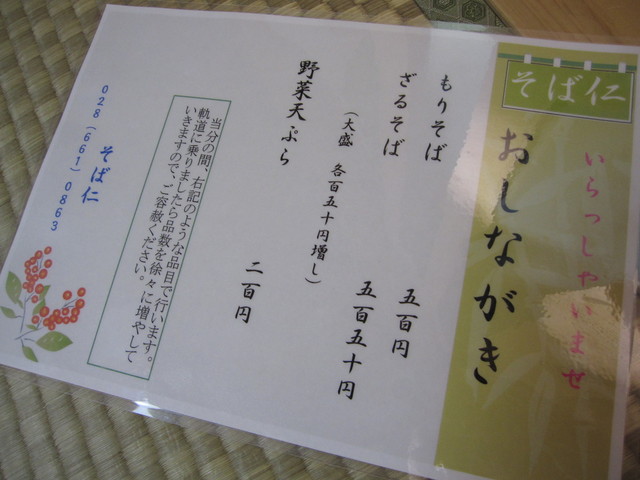 そば仁
いらっしゃいませ
おしながき
もりそば 五百円
ざるそば 五百五十円
(大盛 各百五十円増し)
野菜天ぷら 二百円
当分の間、右記のような品目で行います。
軌道に乗りましたら品数を徐々に増やして
いきますので、ご容赦ください。
そば仁
028(661)0863